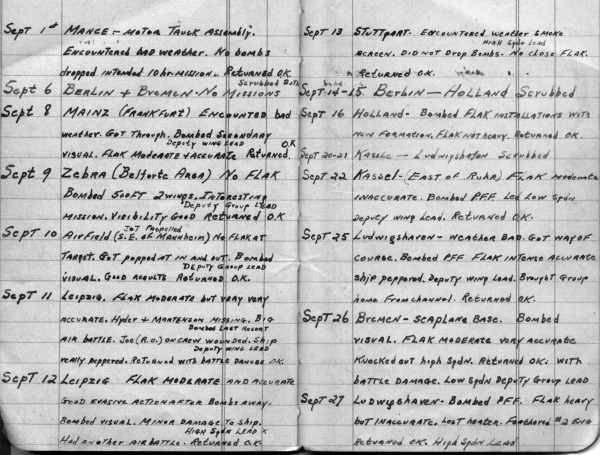 Sept 1st MANCE - MOTOR TRUCK ASSEMBLY.
ENCOUNTERED BAD WEATHER. NO bombs
dropped intended 10 hr. mission. RETURNED O.K.
Scrubbed Both
Sept 6 BERLIN + BREMEN - NO MISSIONS
Sept 8 MAINZ (FRANKFURT) ENCOUNTED bad
weather. GOT Through. Bombed Secondary
Deputy WING LEAD O.K
VISUAL. FLAK MODERATE + ACCURATE Returned.
Sept 9 ZEBRA (BELFORTE AREA) NO FLAK
Bombed 500FT 2 WINGS. INTERESTING
Deputy Group LEAD
MISSION. VISIBILITY GOOD RETURNED O.K
Jet Propelled
Sept 10 AirField (S.E. of Mannheim) NO FLAK AT
TARGET. GOT POPPED AT IN AND OUT. Bombed
DEPUTY GROUP LEAD
VISUAL. GOOD RESULTS RETURNED O.K.
Sept 11 Leipzig. FLAK MODERATE but very very
ACCURATE. Hyder + MARTENSON MISSING. BIG
Bombed LAST RESORT
AIR BATTLE. Joe (R.O.) ON CREW WOUNDED. Ship
Deputy WING LEAD
really peppered. ReTURNED WITH BATTLE DAMAGE OK.
Sept 12 LEIPZIG FLAK MODERATE AND ACCURATE
GOOD EVASIVE ACTION AFTER BOMBS AWAY.
Bombed VISUAL. MINOR DAMAGE TO Ship.
HIGH SQDN LEAD
HAD ANOTHER AIR BATTLE. RETURNED O.K.
Sept 13 STUTTGART - ENCOUNTERED weather SMOKE
HIGH SQDN LEAD
SCREEN. DID NOT DROP BOMBS - NO CLOSE FLAK.
RETURNED O.K.
Sept 14-15 BERLIN - HOLLAND Scrubbed
Sept 16 HOLLAND - Bombed FLAK INSTALLATIONS WITH
NEW FORMATION. FLAK NOT heavy. RETURNED OK.
Sept 20-21 KASSLE - Ludwigshafen Scrubbed
Sept 22 KASSEL - (EAST of Ruhr) FLAK Moderate
INACCURATE. Bombed PFF. Led Low SQDN
Deputy WING LEAD. RETURNED O.K.
Sept 25 Ludwigshaven - WEATHER BAD. GOT WAY OF
COURSE. BOMBED PFF FLAK INTENSE ACCURATE
ship peppered. Deputy WING LEAD. Brought Group
home From channel. RETURNED OK.
Sept 26 BREMEN - SEAPLANE BASE. Bombed
VISUAL. FLAK MODERATE very ACCURATE
KNOCKED OUT high SQDN. RETURNED OK. WITH
BATTLE DAMAGE. LOW SQDN Deputy Group LEAD
Sept 27 Ludwigshaven - Bombed P.F.F. FLAK heavy
but INACCURATE. Lost heater. Feathered #2 ENG
RETURNED OK. High SQDN LEAD